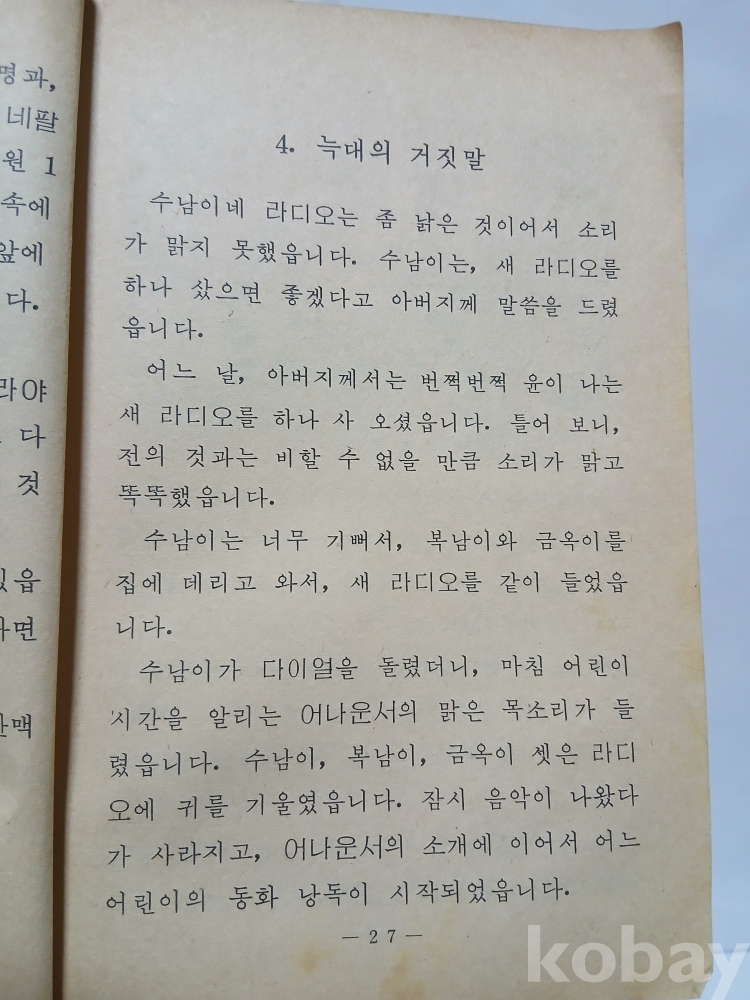 명과,
네팔
원 1
속에
앞에
다.
라야
다
것
읍
면
맥
4. 늑대의 거짓말
수남이네 라디오는 좀 낡은 것이어서 소리
가 맑지 못했읍니다. 수남이는, 새 라디오를
하나 샀으면 좋겠다고 아버지께 말씀을 드렸
읍니다.
어느 날, 아버지께서는 번쩍번쩍 윤이 나는
새 라디오를 하나 사 오셨읍니다. 틀어 보니,
전의 것과는 비할 수 없을 만큼 소리가 맑고
똑똑했읍니다.
수남이는 너무 기뻐서, 복남이와 금옥이를
집에 데리고 와서, 새 라디오를 같이 들었읍
니다.
수남이가 다이얼을 돌렸더니, 마침 어린이
시간을 알리는 어나운서의 맑은 목소리가 들
렸읍니다. 수남이, 복남이, 금옥이 셋은 라디
오에 귀를 기울였읍니다. 잠시 음악이 나왔다
가 사라지고, 어나운서의 소개에 이어서 어느
어린이의 동화 낭독이 시작되었읍니다.
— 27 —
kobay